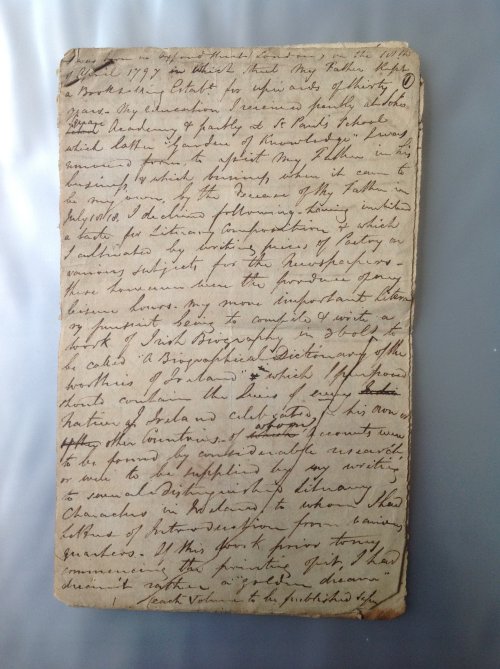 I was born in Oxford Street London, on the
April 1797 in which Street My Father Kept
①
a Bookselling Establt for upwards of thirty
years. My education I received partly at
Academy & partly at St Paul's School
which latter "Garden of Knowledge" I was
removed from to assist My Father in his
business, & which business when it came to
be my own, by the decease of My Father in
July 1818, I declined following. having imbibed
a taste for Literary Composition & which
I cultivated by writing pieces of Poetry on
various subjects for the Newspapers –
these however were the produce of my
leisure hours. My more important Litera
ry pursuit being to compile & write a
work of Irish Biography in 3 vols to
be called "A Biographical Dictionary of the
worthies of Ireland" & which I purposed
should contain the Lives of every
native of Ireland celebrated in his own or
other Countries. of whom accounts were
to be found by considerable research
or were to be supplied by my writing
to several distinguished Literary
Characters in Ireland, to whom I had
letters of Introduction from various
quarters. Of this Work prior to my
commencing the printing of it, I had
dream't rather a "golden dream"
each Volume to be published